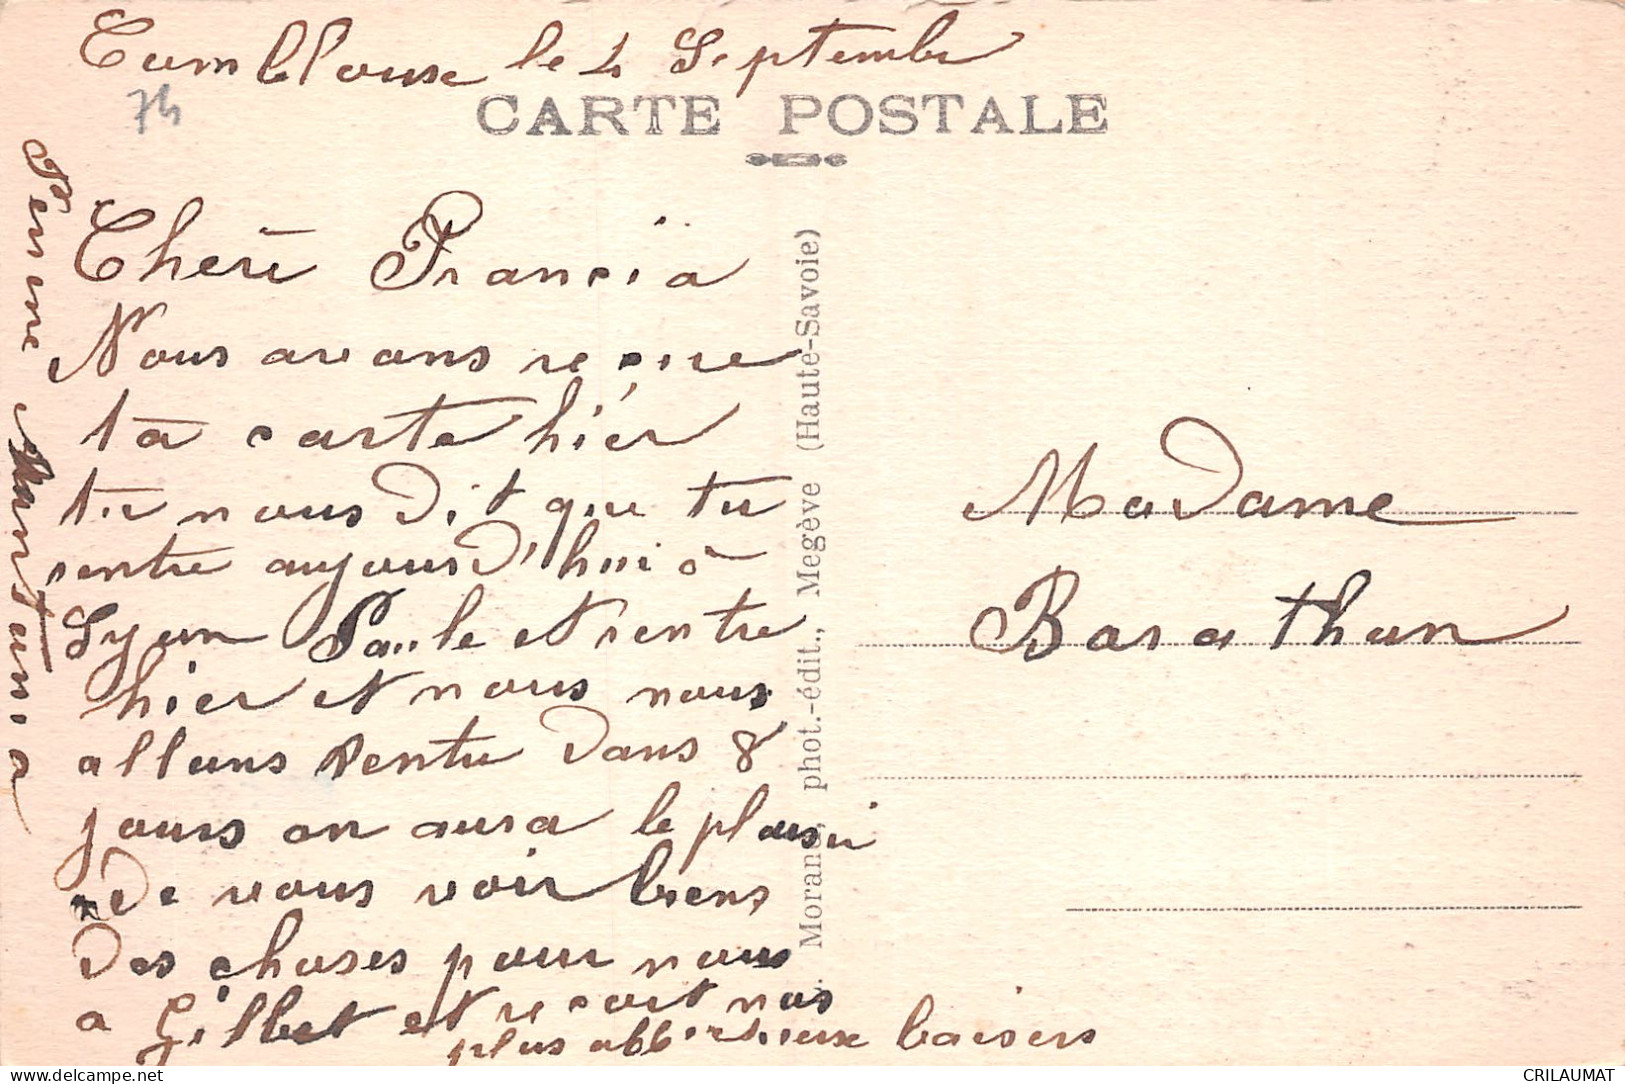 Comblouse le 4 Septembre
74
CARTE POSTALE
Cheré Francia
Nous avons reçue
ta carte hier
tu nous dit que tu
rentre aujourd'hui à
Lyon Paule et rentre
hier et nous nous
allons rentre dans 8
jours on aura le plaisir
de vous voir biens
des choses pour nous
a Gilbet et recoit nos
plus baisers
Madame
Barathon
Morand, phot.-édit., Megève (Haute-Savoie)
CRILAUMAT